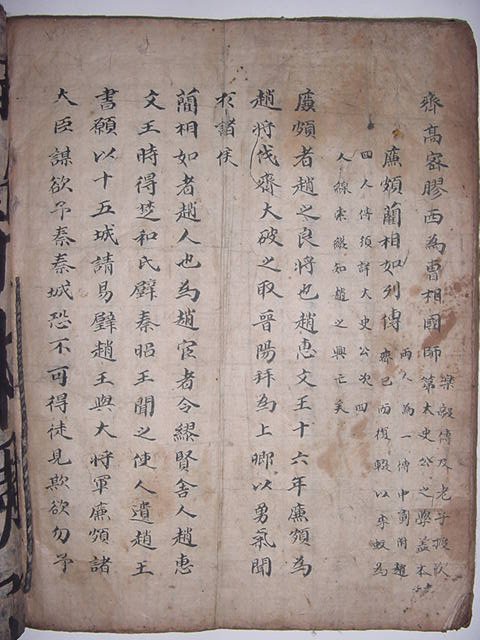 齊高密膠西為曹相國師
樂毅傳及老子授次
第太史公之學蓋本
廉頗藺相如列傳
兩人為一傳中間附趙
奢已而復輟以李牧為
四人傳須詳太史公次四
人線索纔知趙之興亡矣
廉頗者趙之良將也趙惠文王十六年廉頗為
趙將伐齊大破之取晉陽拜為上卿以勇氣聞
於諸侯
藺相如者趙人也為趙宦者令繆賢舍人趙惠
文王時得楚和氏璧秦昭王聞之使人遺趙王
書願以十五城請易璧趙王與大將軍廉頗諸
大臣謀欲予秦秦城恐不可得徒見欺欲勿予